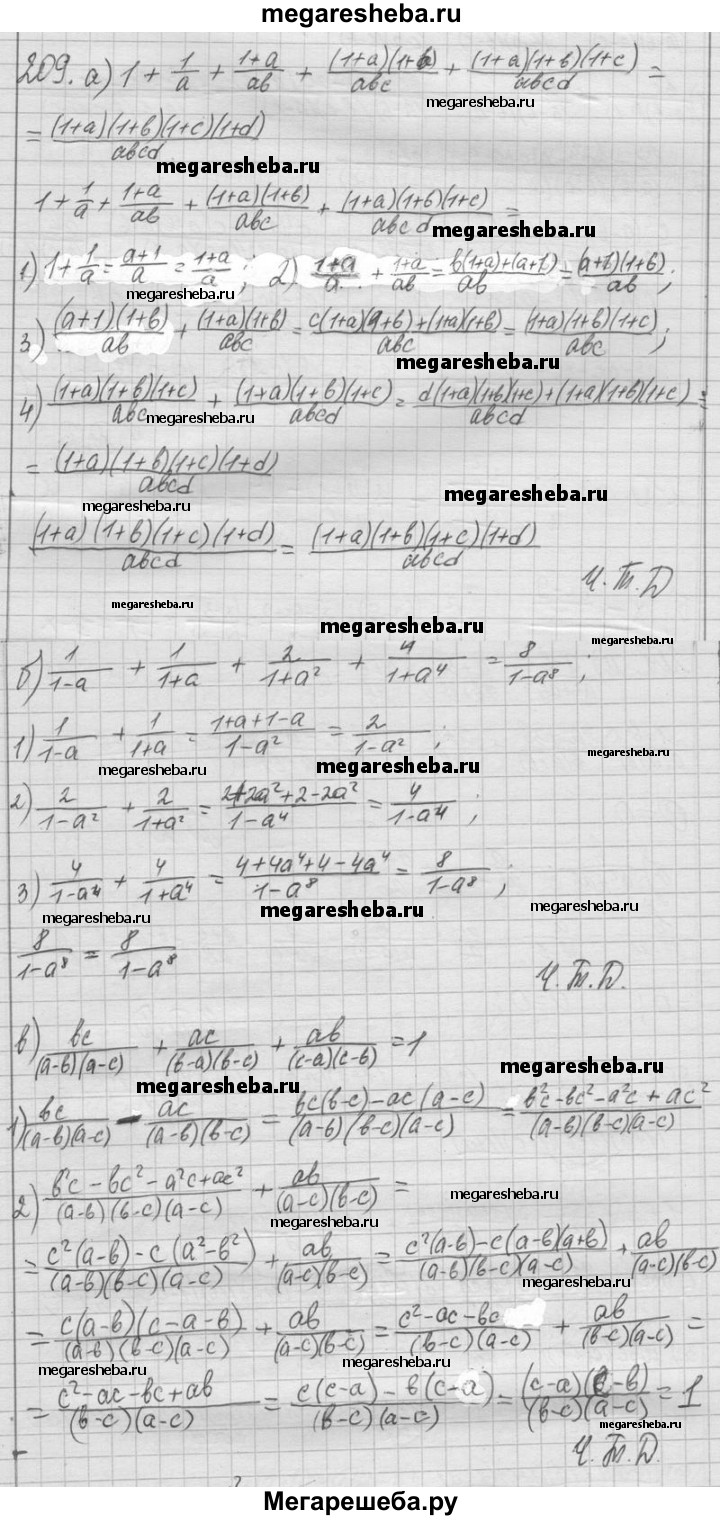 megaresheba.ru
209. а) 1 + 1/a + (1+a)/ab + (1+a)(1+b)/abc + (1+a)(1+b)(1+c)/abcd =
megaresheba.ru
= (1+a)(1+b)(1+c)(1+d)/abcd
megaresheba.ru
1 + 1/a + (1+a)/ab + (1+a)(1+b)/abc + (1+a)(1+b)(1+c)/abcd =
megaresheba.ru
1) 1 + 1/a = (a+1)/a = (1+a)/a ; 2) (1+a)/a + (1+a)/ab = (b(1+a)+(a+1))/ab = (a+1)(1+b)/ab ;
megaresheba.ru
3) (a+1)(1+b)/ab + (1+a)(1+b)/abc = (c(1+a)(1+b)+(1+a)(1+b))/abc = (1+a)(1+b)(1+c)/abc ;
megaresheba.ru
4) (1+a)(1+b)(1+c)/abc + (1+a)(1+b)(1+c)/abcd = (d(1+a)(1+b)(1+c)+(1+a)(1+b)(1+c))/abcd =
megaresheba.ru
= (1+a)(1+b)(1+c)(1+d)/abcd
megaresheba.ru
megaresheba.ru
(1+a)(1+b)(1+c)(1+d)/abcd = (1+a)(1+b)(1+c)(1+d)/abcd
Ч.Т.Д
megaresheba.ru
megaresheba.ru
megaresheba.ru
б) 1/(1-a) + 1/(1+a) + 2/(1+a²) + 4/(1+a⁴) = 8/(1-a⁸) ;
1) 1/(1-a) + 1/(1+a) = (1+a+1-a)/(1-a²) = 2/(1-a²) ;
megaresheba.ru
megaresheba.ru
megaresheba.ru
2) 2/(1-a²) + 2/(1+a²) = (2+2a²+2-2a²)/(1-a⁴) = 4/(1-a⁴) ;
3) 4/(1-a⁴) + 4/(1+a⁴) = (4+4a⁴+4-4a⁴)/(1-a⁸) = 8/(1-a⁸) ;
megaresheba.ru
megaresheba.ru
megaresheba.ru
8/(1-a⁸) = 8/(1-a⁸)
Ч.Т.Д.
в) bc/(a-b)(a-c) + ac/(b-a)(b-c) + ab/(c-a)(c-b) = 1
megaresheba.ru
megaresheba.ru
1) bc/(a-b)(a-c) - ac/(a-b)(b-c) = (bc(b-c)-ac(a-c))/(a-b)(b-c)(a-c) = (b²c-bc²-a²c+ac²)/(a-b)(b-c)(a-c)
2) (b²c-bc²-a²c+ac²)/(a-b)(b-c)(a-c) + ab/(a-c)(b-c) =
megaresheba.ru
megaresheba.ru
= (c²(a-b)-c(a²-b²))/(a-b)(b-c)(a-c) + ab/(a-c)(b-c) = (c²(a-b)-c(a-b)(a+b))/(a-b)(b-c)(a-c) + ab/(a-c)(b-c)
megaresheba.ru
= c(a-b)(c-a-b)/(a-b)(b-c)(a-c) + ab/(a-c)(b-c) = (c²-ac-bc)/(b-c)(a-c) + ab/(b-c)(a-c) =
megaresheba.ru
megaresheba.ru
= (c²-ac-bc+ab)/(b-c)(a-c) = (c(c-a)-b(c-a))/(b-c)(a-c) = (c-a)(c-b)/(b-c)(a-c) = 1
megaresheba.ru
Ч.Т.Д.
Мегарешеба.ру